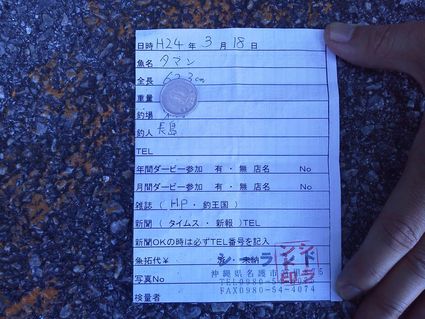 日時 H24年 3月 18日
魚名 タマン
全長 62.3cm
重量
釣場
釣人 長島
TEL
年間ダービー参加 有・無 店名 No
月間ダービー参加 有・無 店名 No
雑誌（HP・釣王国）
新聞（タイムス・新報）TEL
新聞OKの時は必ずTEL番号を記入
魚拓代￥ 済・未納
写真No
検量者
沖縄県名護市
FAX0980-54-4074